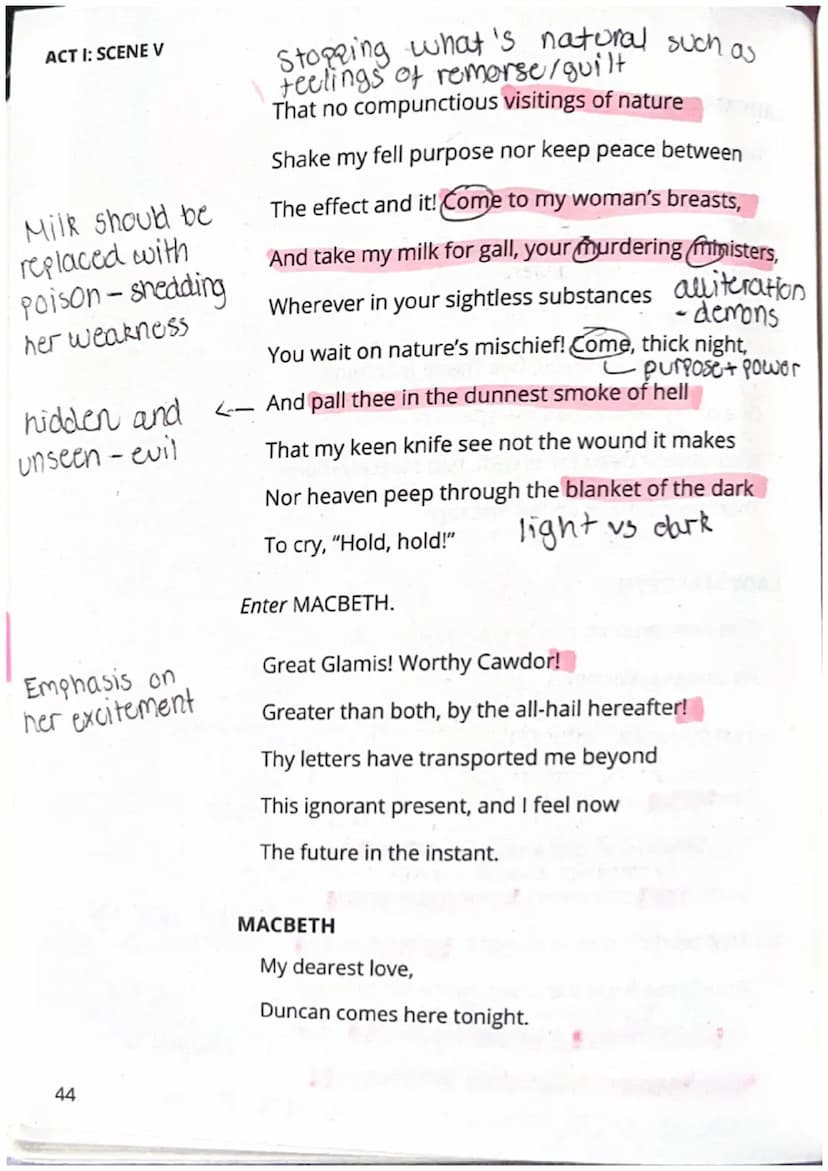 ACT I: SCENE V
Stopping what's natural such as
feelings of remorse/guilt
That no compunctious visitings of nature
Shake my fell purpose nor keep peace between
The effect and it! Come to my woman's breasts,
And take my milk for gall, your murdering ministers,
Milk should be
replaced with
poison - shedding
her weakness
Wherever in your sightless substances
alliteration
- demons
You wait on nature's mischief! Come, thick night,
purpose + power
And pall thee in the dunnest smoke of hell
hidden and
unseen - evil
That my keen knife see not the wound it makes
Nor heaven peep through the blanket of the dark
To cry, "Hold, hold!"
light vs dark
Enter MACBETH.
Great Glamis! Worthy Cawdor!
Emphasis on
her excitement
Greater than both, by the all-hail hereafter!
Thy letters have transported me beyond
This ignorant present, and I feel now
The future in the instant.
MACBETH
My dearest love,
Duncan comes here tonight.
44